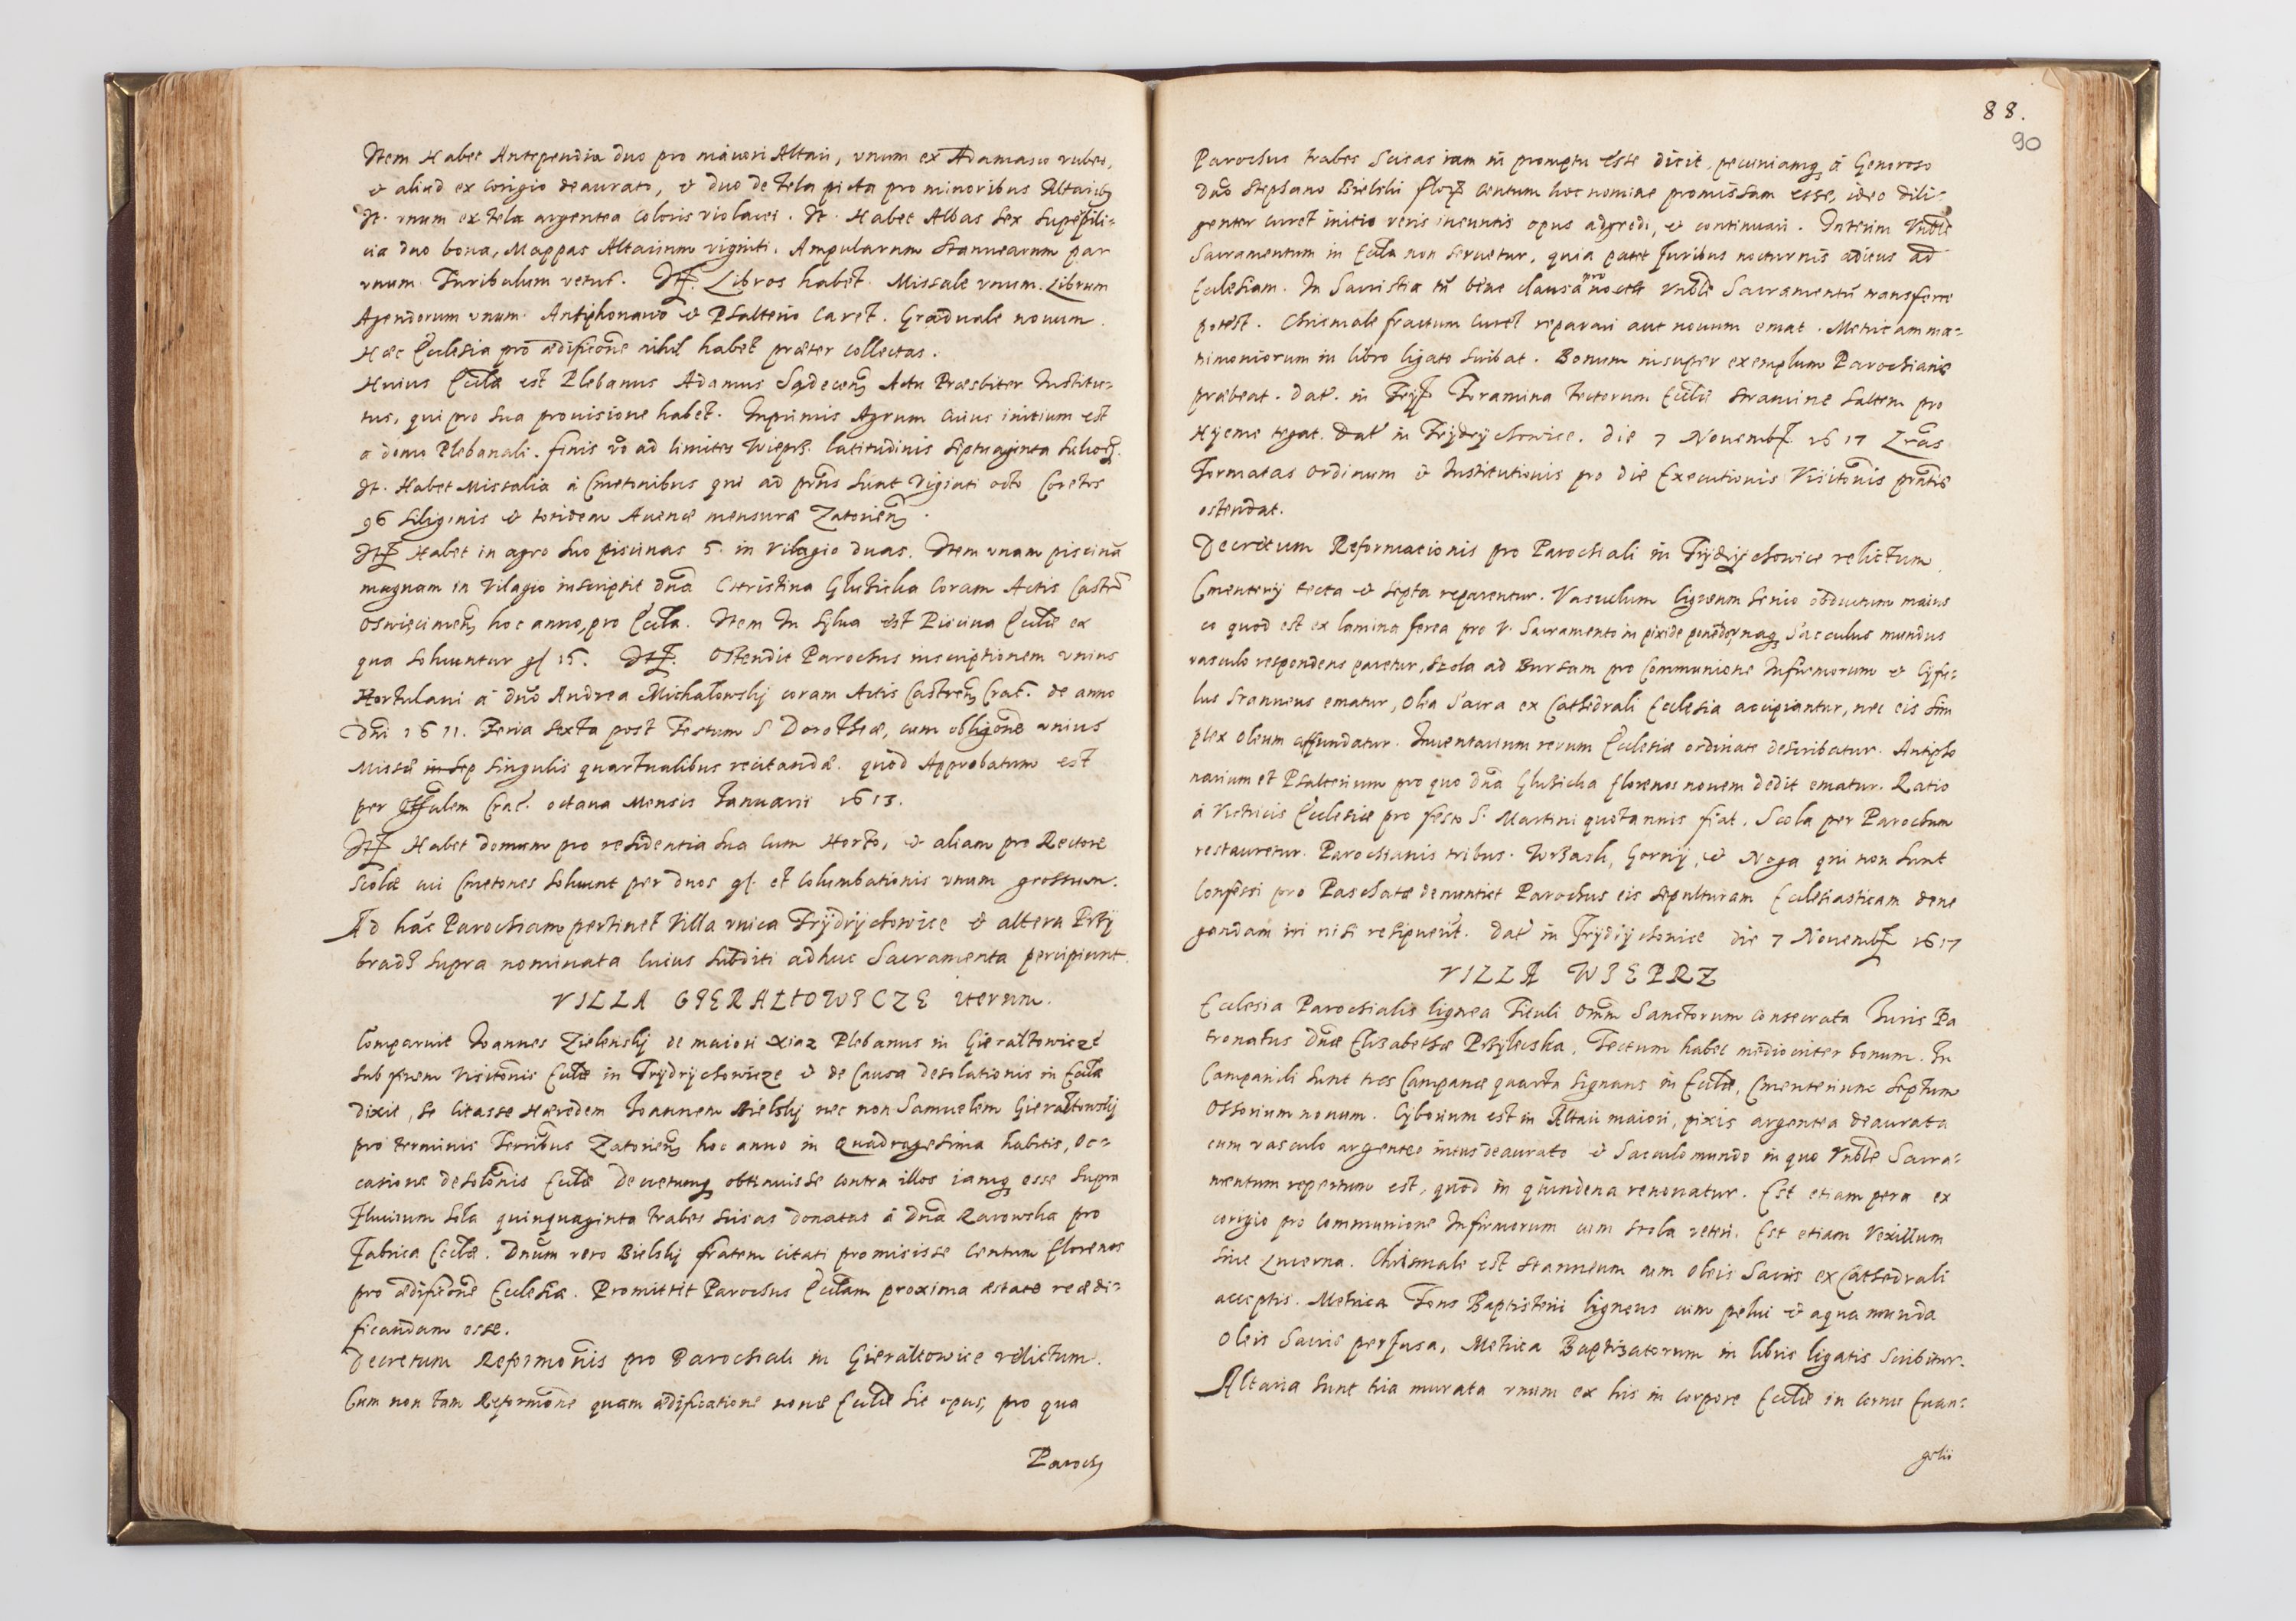 Item Habet Antependia duo pro maiori Altari, vnum ex Adamasco rubeo,
& aliud ex corigio deaurato, & duo de tela picta pro minoribus Altaribꝫ
It. vnum ex tela argentea coloris violacei. It. Habet Albas sex superpili-
cia duo bona, Mappas Altarium viginti. Ampularum stannearum par
vnum Turibulum vetus. Itꝫ. Libros habet. Missale vnum. Librum
Agendorum vnum Antiphonario & Psalterio caret. Graduale nouum.
Hæc Ecclesia pro ædificōne nihil habet præter collectas.
Huius Eccliæ est Plebanus Adamus Sądecenꝫ Actu Præsbiter Institu-
tus, qui pro sua prouisione habet. Inprimis Agrum cuius initium est
a domo Plebanali. finis vō ad limites Wieprz. latitudinis septuaginta sulcorꝫ.
It. Habet Missalia à Cmetonibus qui ad pr̄ns sunt Viginti octo Coretos
96 siliginis & totidem Auenæ mensuræ Zatorienꝫ.
Itꝫ Habet in agro suo piscinas 5. in Vilagio duas. Item vnam piscinā
magnam in Vilagio inscripsit Dn̄a Christina Gluszicka coram Actis Castrē
Oswięcimenꝫ hoc anno, pro Eccla. Item In sylua est Piscina Eccliæ ex
qua soluuntur gſ 15. Itꝫ. Ostendit Parochus inscriptionem vnius
Hortulani á Dn̄o Andrea Michałowskj coram Actis Castrenꝫ Crac̄. de anno
Dn̄i 1611. Feria sexta post Festum S Dorotheæ, cum obligōne vnius
Missæ in sep singulis quartualibus recitandæ. quod Approbatum est
per Offālem Crac̄. octaua Mensis Ianuarii 1613.
Itꝫ Habet domum pro residentia sua cum Horto, & aliam pro Rectore
Scolæ cui Cmetones soluunt per duos gſ. et columbationis vnum grossum.
Ad hāc Parochiam pertinet Villa vnica Frÿdrÿchowice & altera Przÿ
bradz supra nominata cuius subditi adhuc Sacramenta percipiunt.
VILLA GIERAŁTOWICZE iterum.
Comparuit Ioannes Zielenskj de maiori Xiaz Plebanus in Gierałtowicze
sub finem Visitōnis Eccliæ in Frÿdrÿchowicze & de causa desolationis in Ecclæ
dixit, se citasse Hæredem Ioannem Bielskj nec non Samuelem Gierałtowskj
pro terminis Terrībus Zatorienꝫ hoc anno in Quadragesima habitis, oc-
casione desolōnis Eccliæ Decretumqꝫ obtinuisse contra illos iamqꝫ esse supra
Fluuium Sola quinquaginta trabes scisas donatas á Dn̄a Rarowska pro
Fabrica Ecclæ. Dnūm vero Bielskj fratem citati promisisse centum florenos
pro ædificōne Ecclesiæ. Promittit Parochus Eccliam proxima æstate reædi-
ficandam esse.
Decretum Reformōnis pro Parochiali in Gierałtowice relictum.
Cum non tam Reformōne quam ædificatione nouæ Eccliæ sit opus, pro qua
Parochꝫ
88.
90
Parochus trabes Scisas iam in promptu esse dicit, pecuniamqꝫ á Generoso
Dn̄o Stephano Bielski florꝫ centum hoc nomine promissam esse, ideo dili-
genter curet initio veris ineuntis opus adgredi, & continuari. Interim Vnble
Sacramentum in Eccla non seruetur, quia patet furibus nocturnis aditus ad
Ecclesiam. In Sacristia tn̄ bene clausa pro nocte Vnble Sacramentū transferre
potest. Chrismale fractum curet reparari aut nouum emat. Metricam ma-
trimoniorum in libro ligato scribat. Bonum insuper exemplum Parochianis
præbeat. Dat̄. in Frÿꝫ Foramina tectorum Eccliæ stramine saltem pro
Hÿeme tegat. Dat̄ in Frÿdrÿchowice. die 7 Nouembꝫ 1617 Lr̄as
Formatas Ordinum & Institutionis pro die Executionis Visitōnis pn̄tis
ostendat.
Decretum Reformationis pro Parochiali in Frÿdrÿchowice relictum.
Cmenterij tecta & septa reparentur. Vasculum ligneum serico obductum maius
eo quod est ex lamina ferea pro V. Sacramento in pixide ponēdo, Sacculus mundus
vasculo respondens paretur, Stola ad Bursam pro Communione Infirmorum & Cyfu-
lus stanneus ematur, Olea Sacra ex Cathedrali Ecclesia accipiantur, nec eis sim
plex oleum affundatur. Inuentarium rerum Ecclesiæ ordinate describatur. Antipho
narium et Psalterium pro quo Dn̄a Gluszicka florenos nouem dedit ematur. Ratio
á Vitricis Ecclesiæ pro festo S. Martini quotannis fiat. Scola per Parochum
restauretur. Parochianis tribus. Wrzask, Gornÿ, & Noga qui non sunt
Confessi pro Paschate denuntiet Parochus eis sepulturam Ecclesiasticam dene
gandam iri nisi resipuerīt. Dat̄ in Frÿdrÿchowice die 7 Nouembꝫ 1617
VILLA WIEPRZ
Ecclesia Parochialis lignea Tituli Omm̄ Sanctorum consecrata Iuris Pa
tronatus Dn̄æ Elisabethæ Przyłecska. Tectum habet mediocriter bonum. In
Campanili sunt tres Campanæ quarta signans in Ecclæ, Cmenterium septum
Ossorium nouum. Cyborium est in Altari maiori, pixis argentea deaurata
cum vasculo argenteo intus deaurato & Sacculo mundo in quo Vnble Sacra-
mentum repertum est, quod in quindena renouatur. Est etiam pera ex
corigio pro Communione Infirmorum cum stola veteri. Est etiam Vexillum
siue Lucerna. Chrismale est stanneum cum oleis Sacris ex Cathedrali
acceptis. Metrica Fons Baptisterii ligneus cum pelui & aqua munda
Oleis Sacris perfusa, Metrica Baptizatorum in libris ligatis scribitur.
Altaria sunt tria murata vnum ex his in corpore Eccliæ in cornu Euan-
gelii